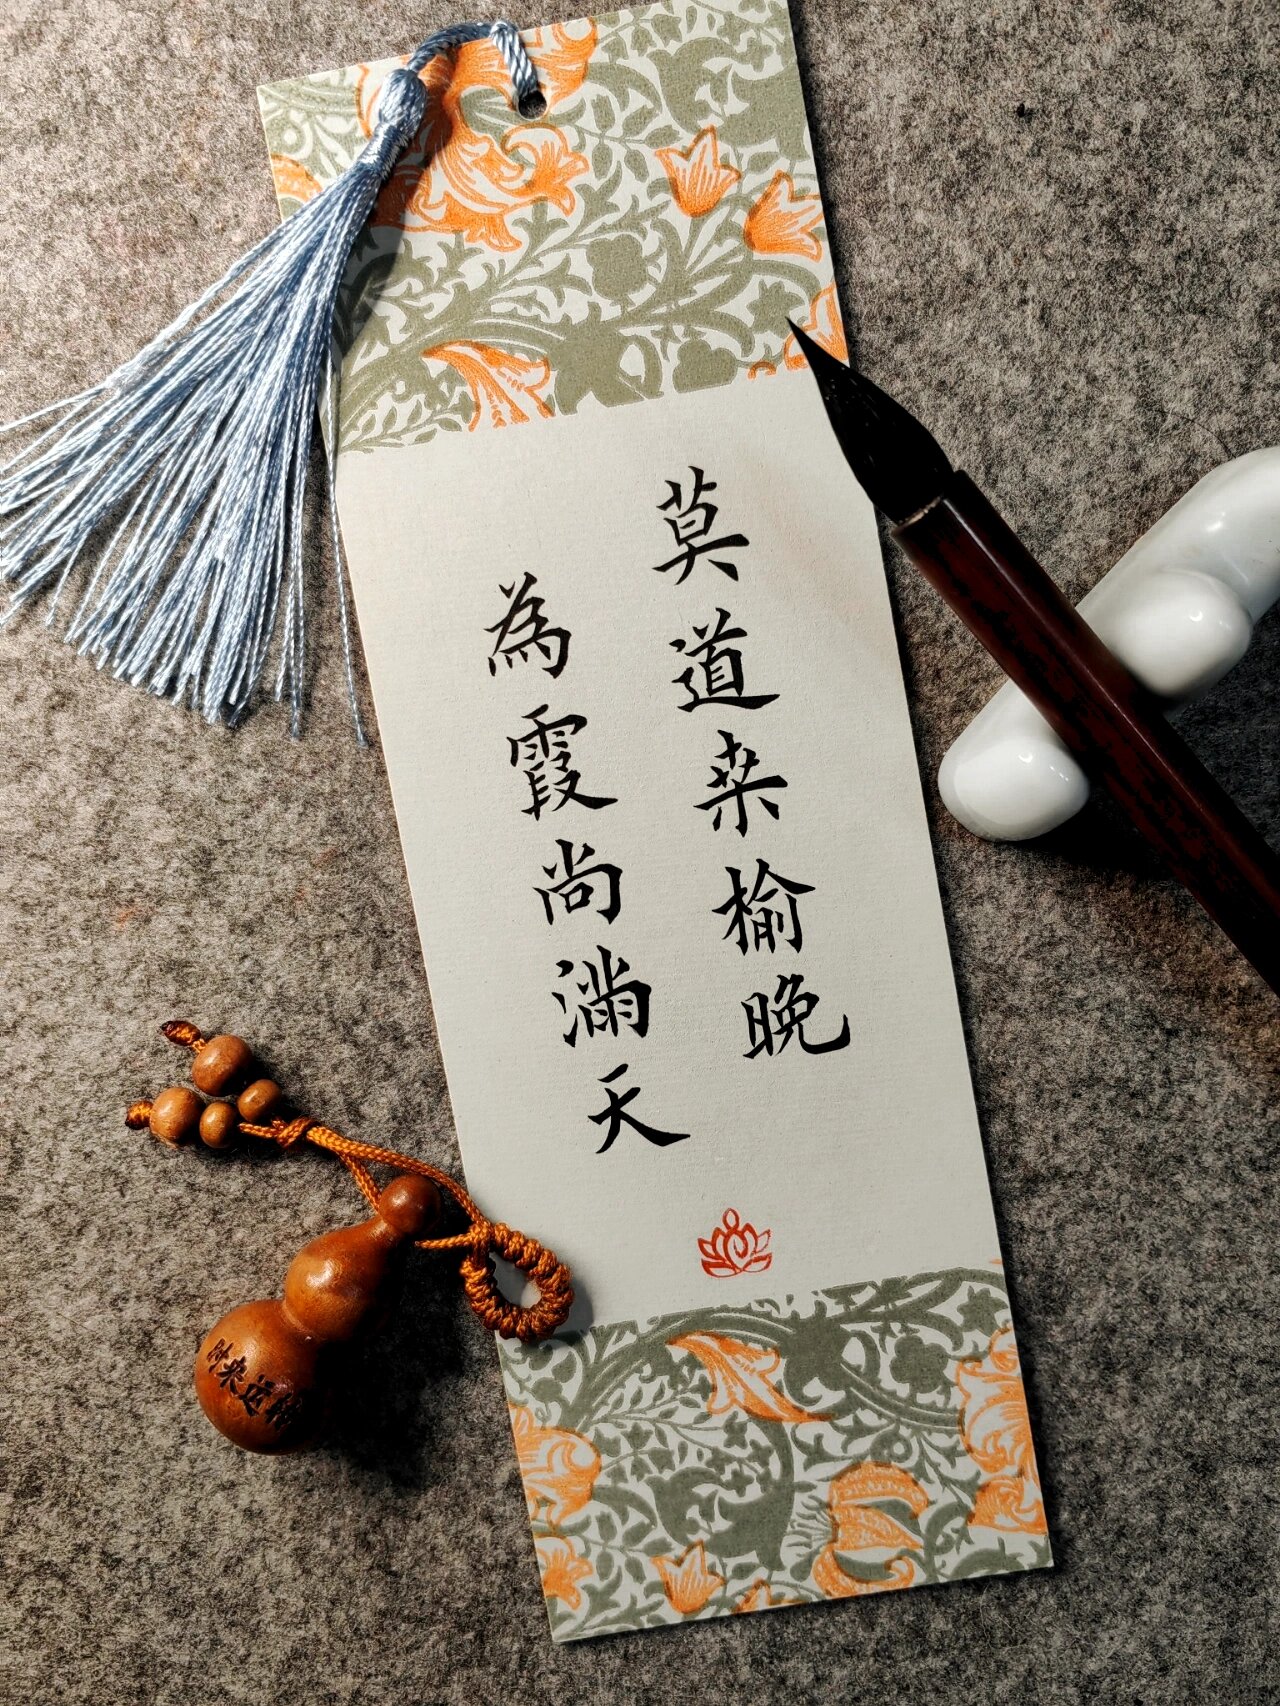 莫道桑榆晚
為霞尚滿天
时来运转